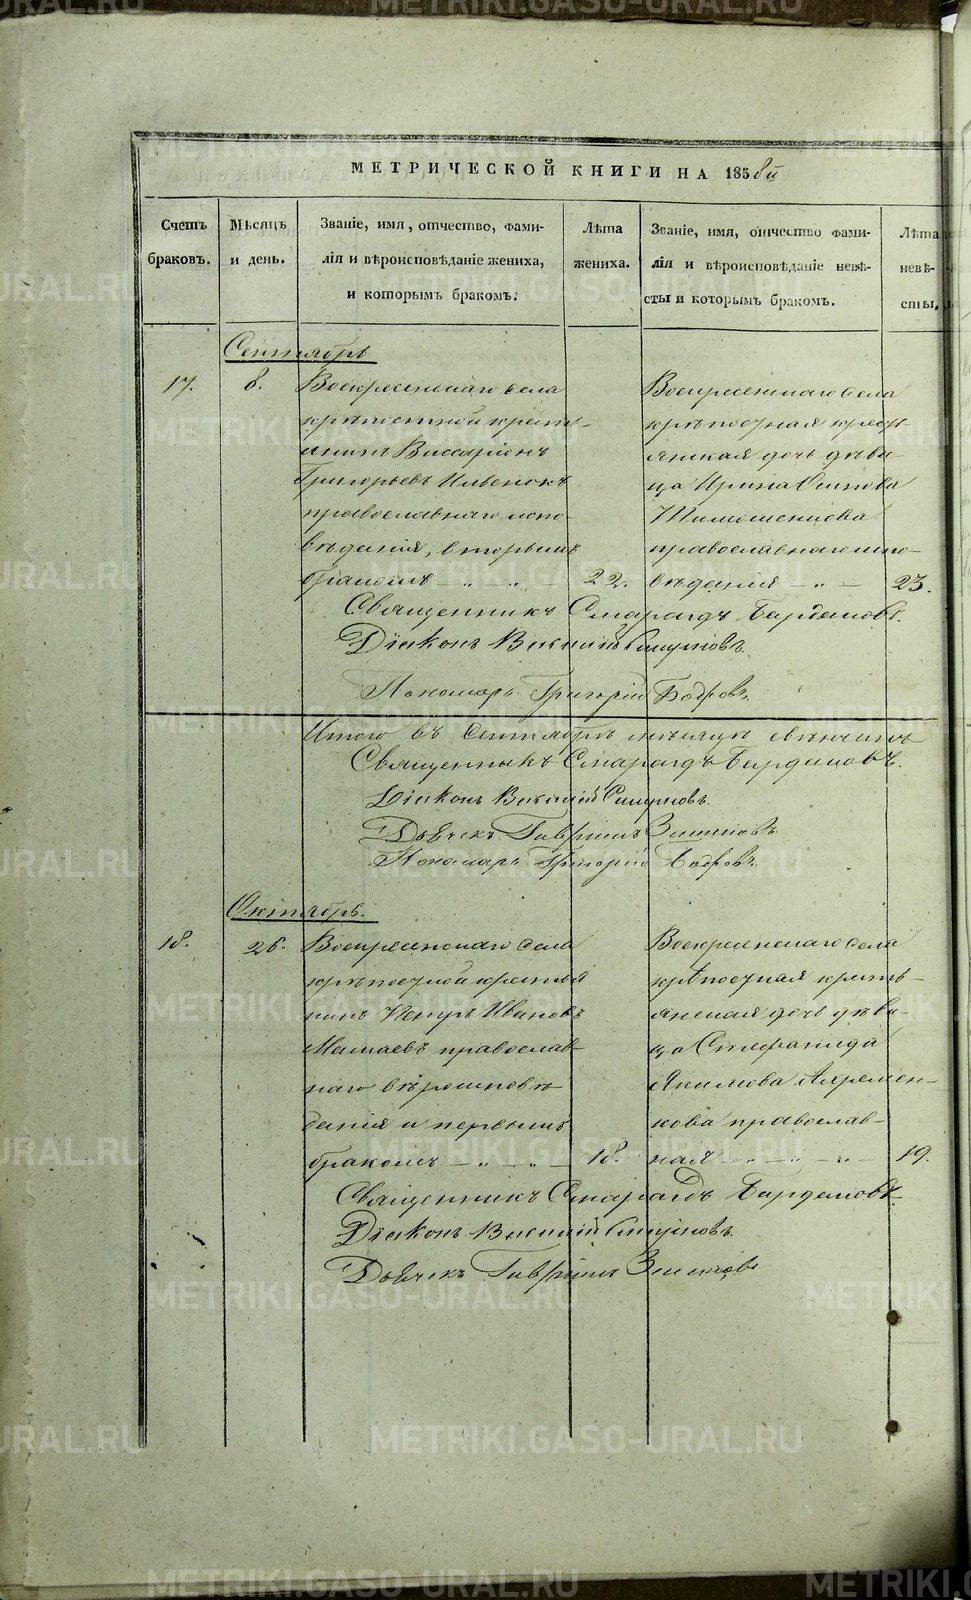 МЕТРИЧЕСКОЙ КНИГИ НА 1858й
Счетъ браковъ.
Мѣсяцъ и день.
Званіе, имя, отчество, фами-
лія и вѣроисповѣданіе жениха,
и которымъ бракомъ.
Лѣта жениха.
Званіе, имя, отчество фами-
лія и вѣроисповѣданіе невѣ-
сты и которымъ бракомъ.
Лѣта невѣ-
сты.
Сентябрь
17.
8.
Воскресенскаго села
крѣпостной кресть-
янинъ Виссаріонъ
Григорьевъ
православнаго испо-
вѣданія, вторымъ
бракомъ — „ — „ —
22.
Воскресенскаго села
крѣпостная кресть-
янская дочь дѣви-
ца Ирина Осипова
православнаго испо-
вѣданія — „ —
23.
Священникъ Смарагдъ
Діаконъ Смирновъ.
Пономарь Григорій Бодровъ.
Итого въ Сентябрѣ мѣсяцѣ
Священникъ Смарагдъ
Діаконъ Смирновъ.
Дьячекъ Гавріилъ
Пономарь Григорій Бодровъ.
Октябрь.
18.
26.
Воскресенскаго села
крѣпостной крестья
нинъ Петръ Ивановъ
Мамаевъ православ-
наго вѣроисповѣ-
данія и первымъ
бракомъ — „ — „ —
18.
Воскресенскаго села
крѣпостная кресть-
янская дочь дѣви-
ца Стефанида
Якимова
кова православ-
ная — „ — „ —
19.
Священникъ Смарагдъ
Діаконъ Смирновъ.
Дьячекъ Гавріилъ
METRIKI.GASO-URAL.RU